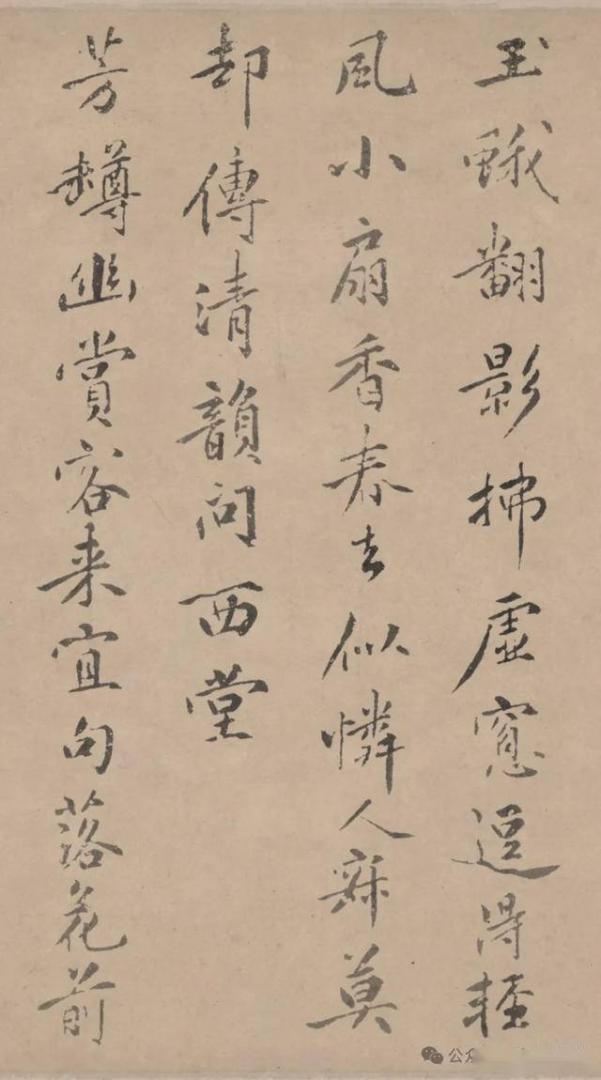 玉蛾翻影拂虛窓逗得輕
風小扇香春去似憐人寂莫
却傳清韻問西堂
芳罇幽賞客来宜句落花前
公众